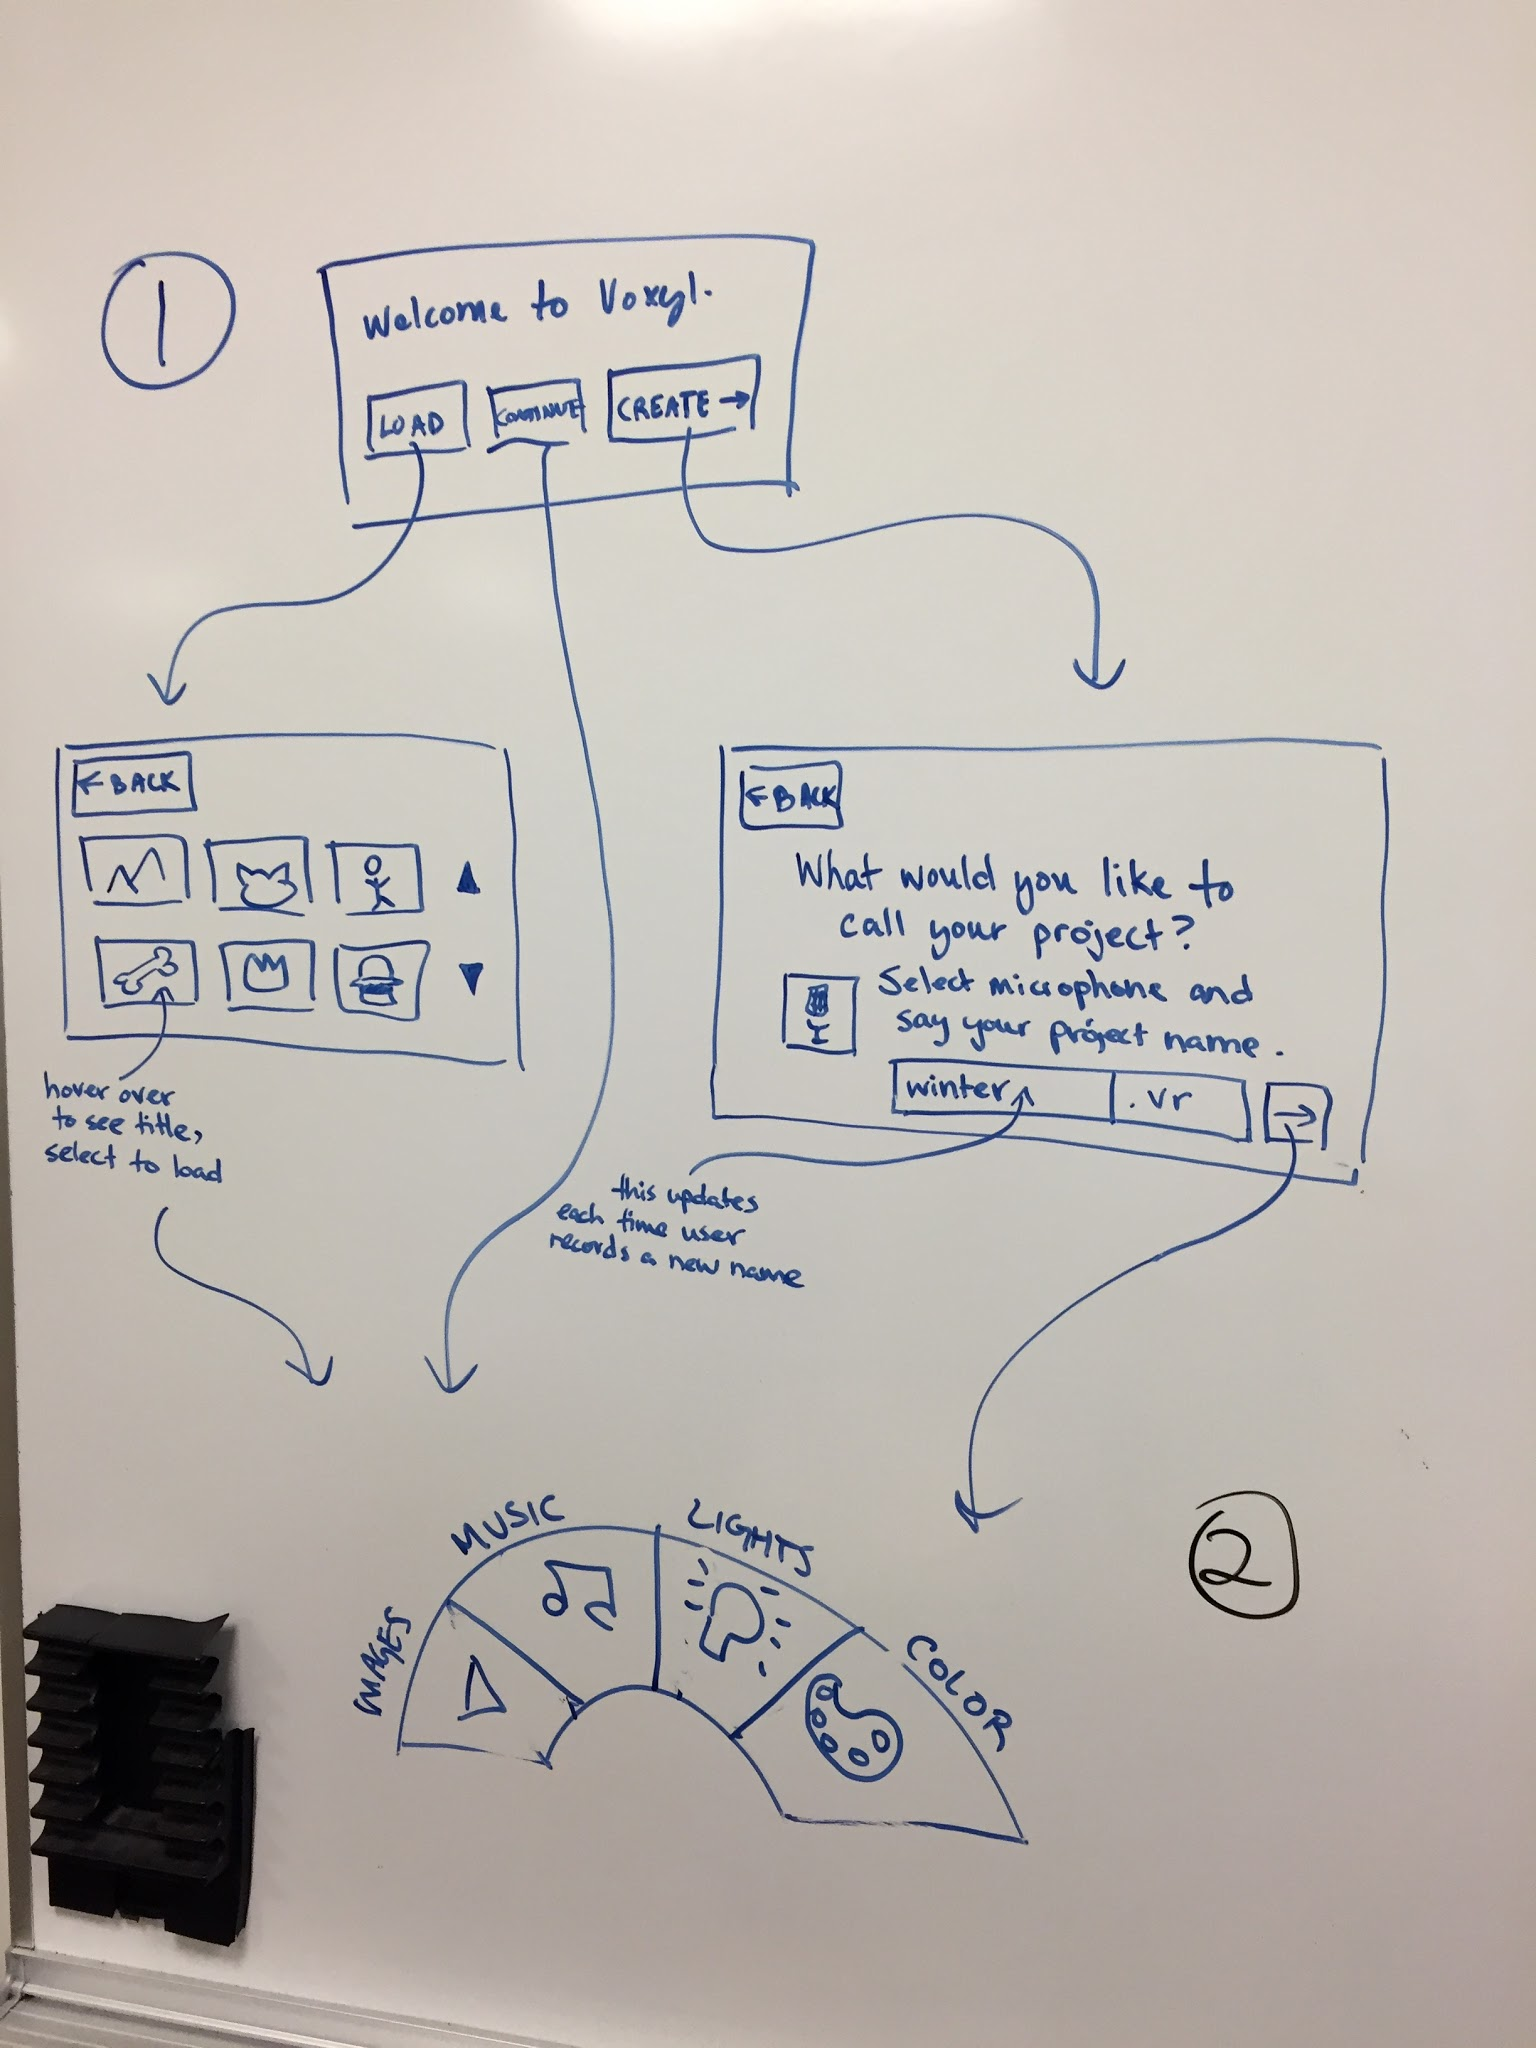 1
Welcome to Voxyl.
LOAD
CONTINUE
CREATE →
← BACK
hover over
to see title,
select to load
← BACK
What would you like to
call your project?
Select microphone and
say your project name.
winter
.vr
→
this updates
each time user
records a new name
IMAGES
MUSIC
LIGHTS
COLOR
2